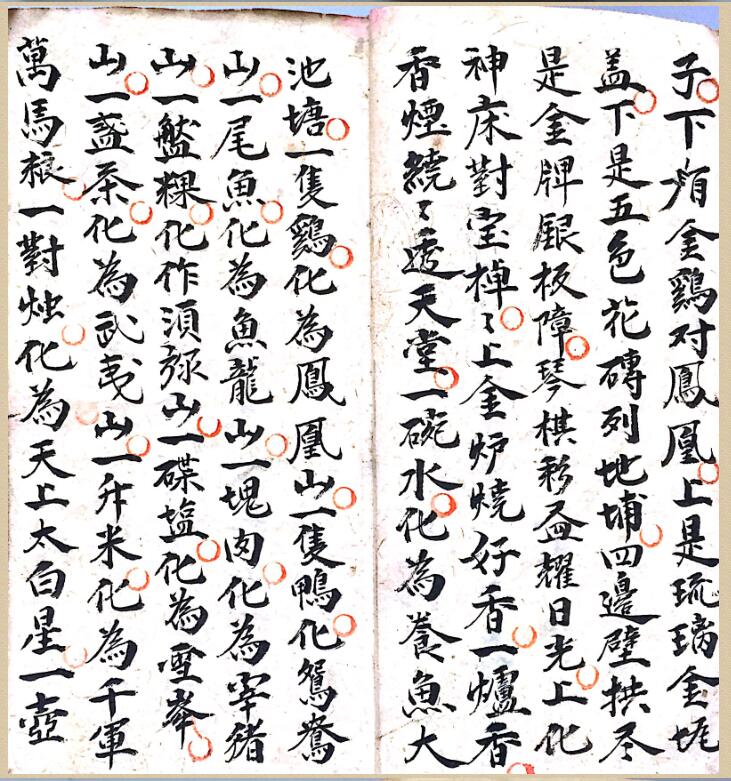 子下有金鷄对鳳凰上是琉璃金埦
盖下是五色花磚列地埔四邊壁拱尽
是金牌銀板障琴棋彩盃耀日光上化
神床對宝棹〻上金炉燒好香一爐香
香煙繞〻透天堂一碗水化為養魚大
池塘一隻鷄化為鳳凰山一隻鴨化鴛鴦
山一尾魚化為魚龍山一塊肉化為宰猪
山一盤粿化作湏弥山一碟塩化為雪峯
山一盞茶化為武夷山一升米化為千軍
萬馬粮一對烛化為天上太白星一壺